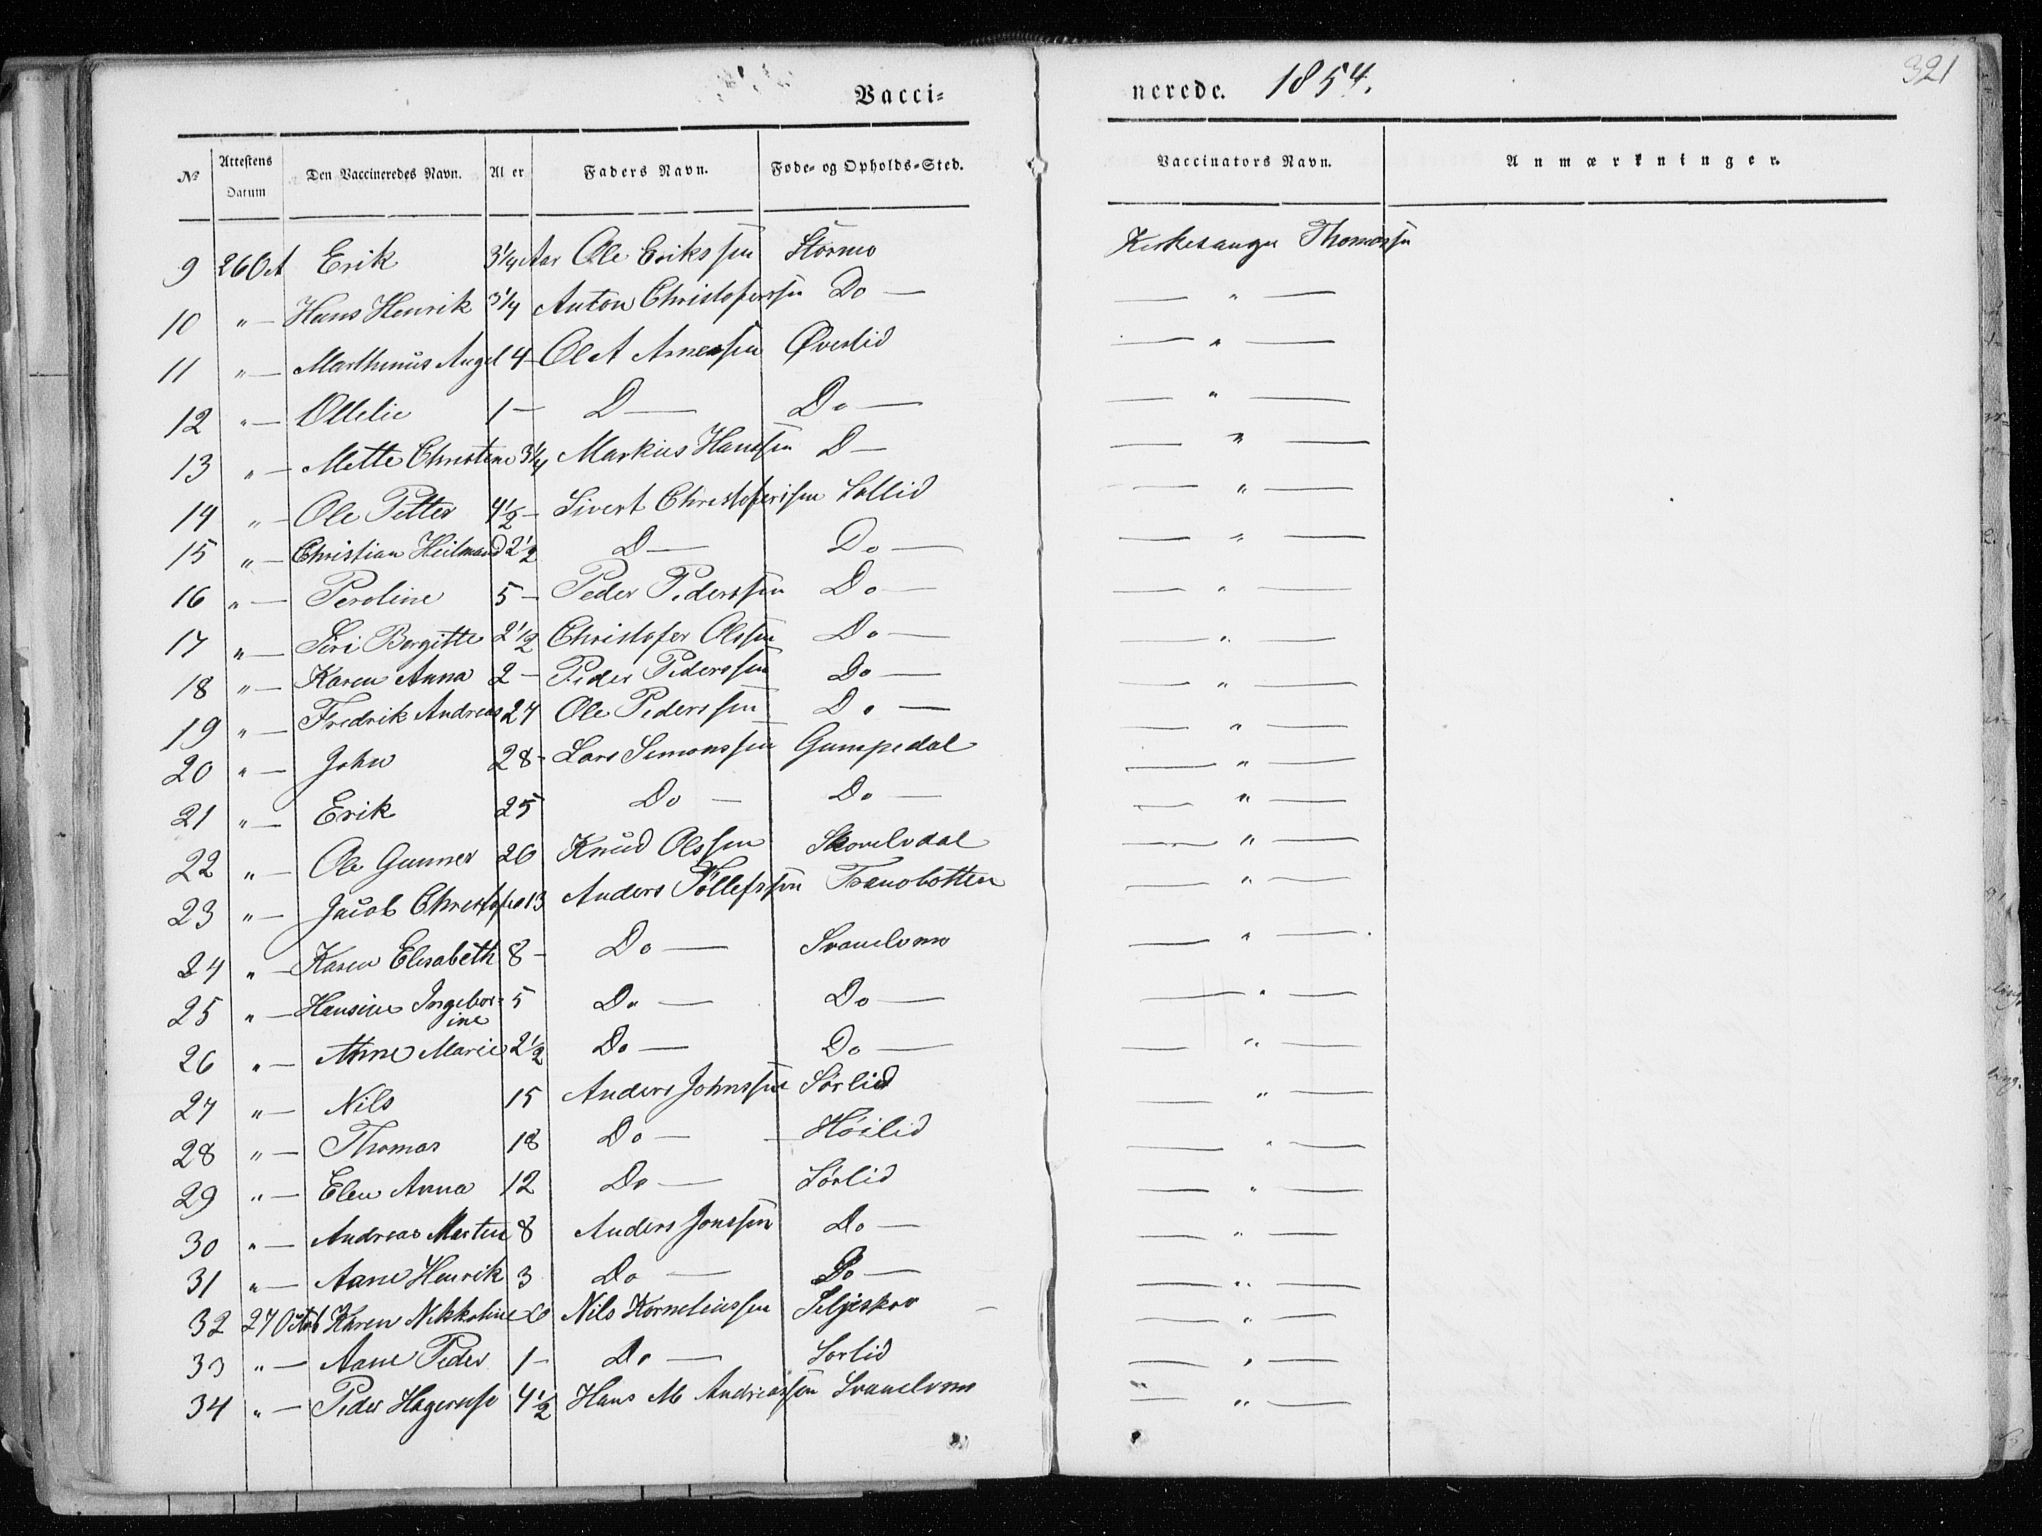 321
Vacci- nerede. 1854.
No Attestens Datum Den Vaccineredes Navn. Alder Faders Navn. Føde- og Opholds-Sted. Vaccinators Navn. Anmærkninger.
9 26 Oct Erik 3 1/4 Aar Ole Erikssen Stormo Kirkesanger Thomassen
10 " — Hans Henrik 3 1/4 Anton Christoferssen Do — — " —
11 " — Marthinus Angel 4 — Ol A Arnessen Øverlid — " —
12 " — Ollelie 1 — D — Do — — " —
13 " — Mette Christine 3 1/4 Markus Hanssen D — — " —
14 " — Ole Petter 4 1/2 — Sivert Christoferssen Sollid — " —
15 " — Christian Heilmand 2 1/2 D — Do — — " —
16 " — Peroline 5 — Peder Pederssen Do — — " —
17 " — Siri Bergitte 2 1/2 Christofer Olssen Do — — " —
18 " — Karen Anna 2 — Peder Pederssen Do — — " —
19 " — Fredrik Andreas 27 Ole Pederssen Do — — " —
20 " — John 28 - Lars Simonssen Gumpedal — " —
21 " — Erik 25 Do — Do — — " —
22 " — Ole Gunner 26 Knud Olssen — " —
23 " — Jacob Christofer 13 Anders Tollefssen Tranobotten — " —
24 " — Karen Elisabeth 8 — Do — Svanelvmo — " —
25 " — Hansine Ingebor- 5 Do — Do — — " —
ine
26 " — Anne Marie 2 1/2 Do — Do — — " —
27 " — Nils 15 Anders Johnssen Sørlid — " —
28 " — Thomas 18 Do — Høilid — " —
29 " — Elen Anna 12 Do — Sørlid — " —
30 " — Andreas Martin 8 Anders Jonssen Do — — " —
31 " — Aane Henrik 3 Do — Do — — " —
32 27 Octob Karen Nikkoline Nils Korneliussen Seljeskov — " —
33 " — Aane Peder 1 — Do — Sorlid — " —
34 " — Peder 4 1/2 Hans M Andreassen Svanelvmo — " —